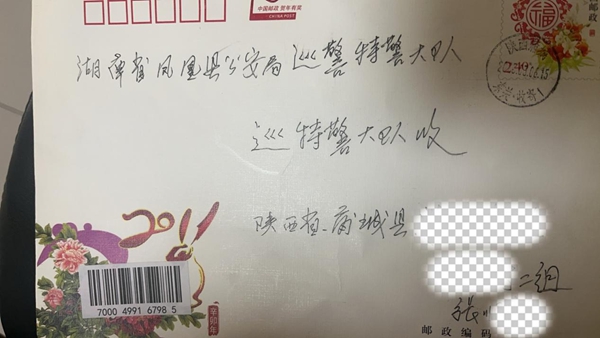 中国邮政 贺年有奖
CHINA POST
邮政
福
湖南省凤凰县公安局巡警特警大队
巡特警大队收
陕西省蒲城县
二组
张
2011
辛卯年
7000 4991 6798 5
邮政编码